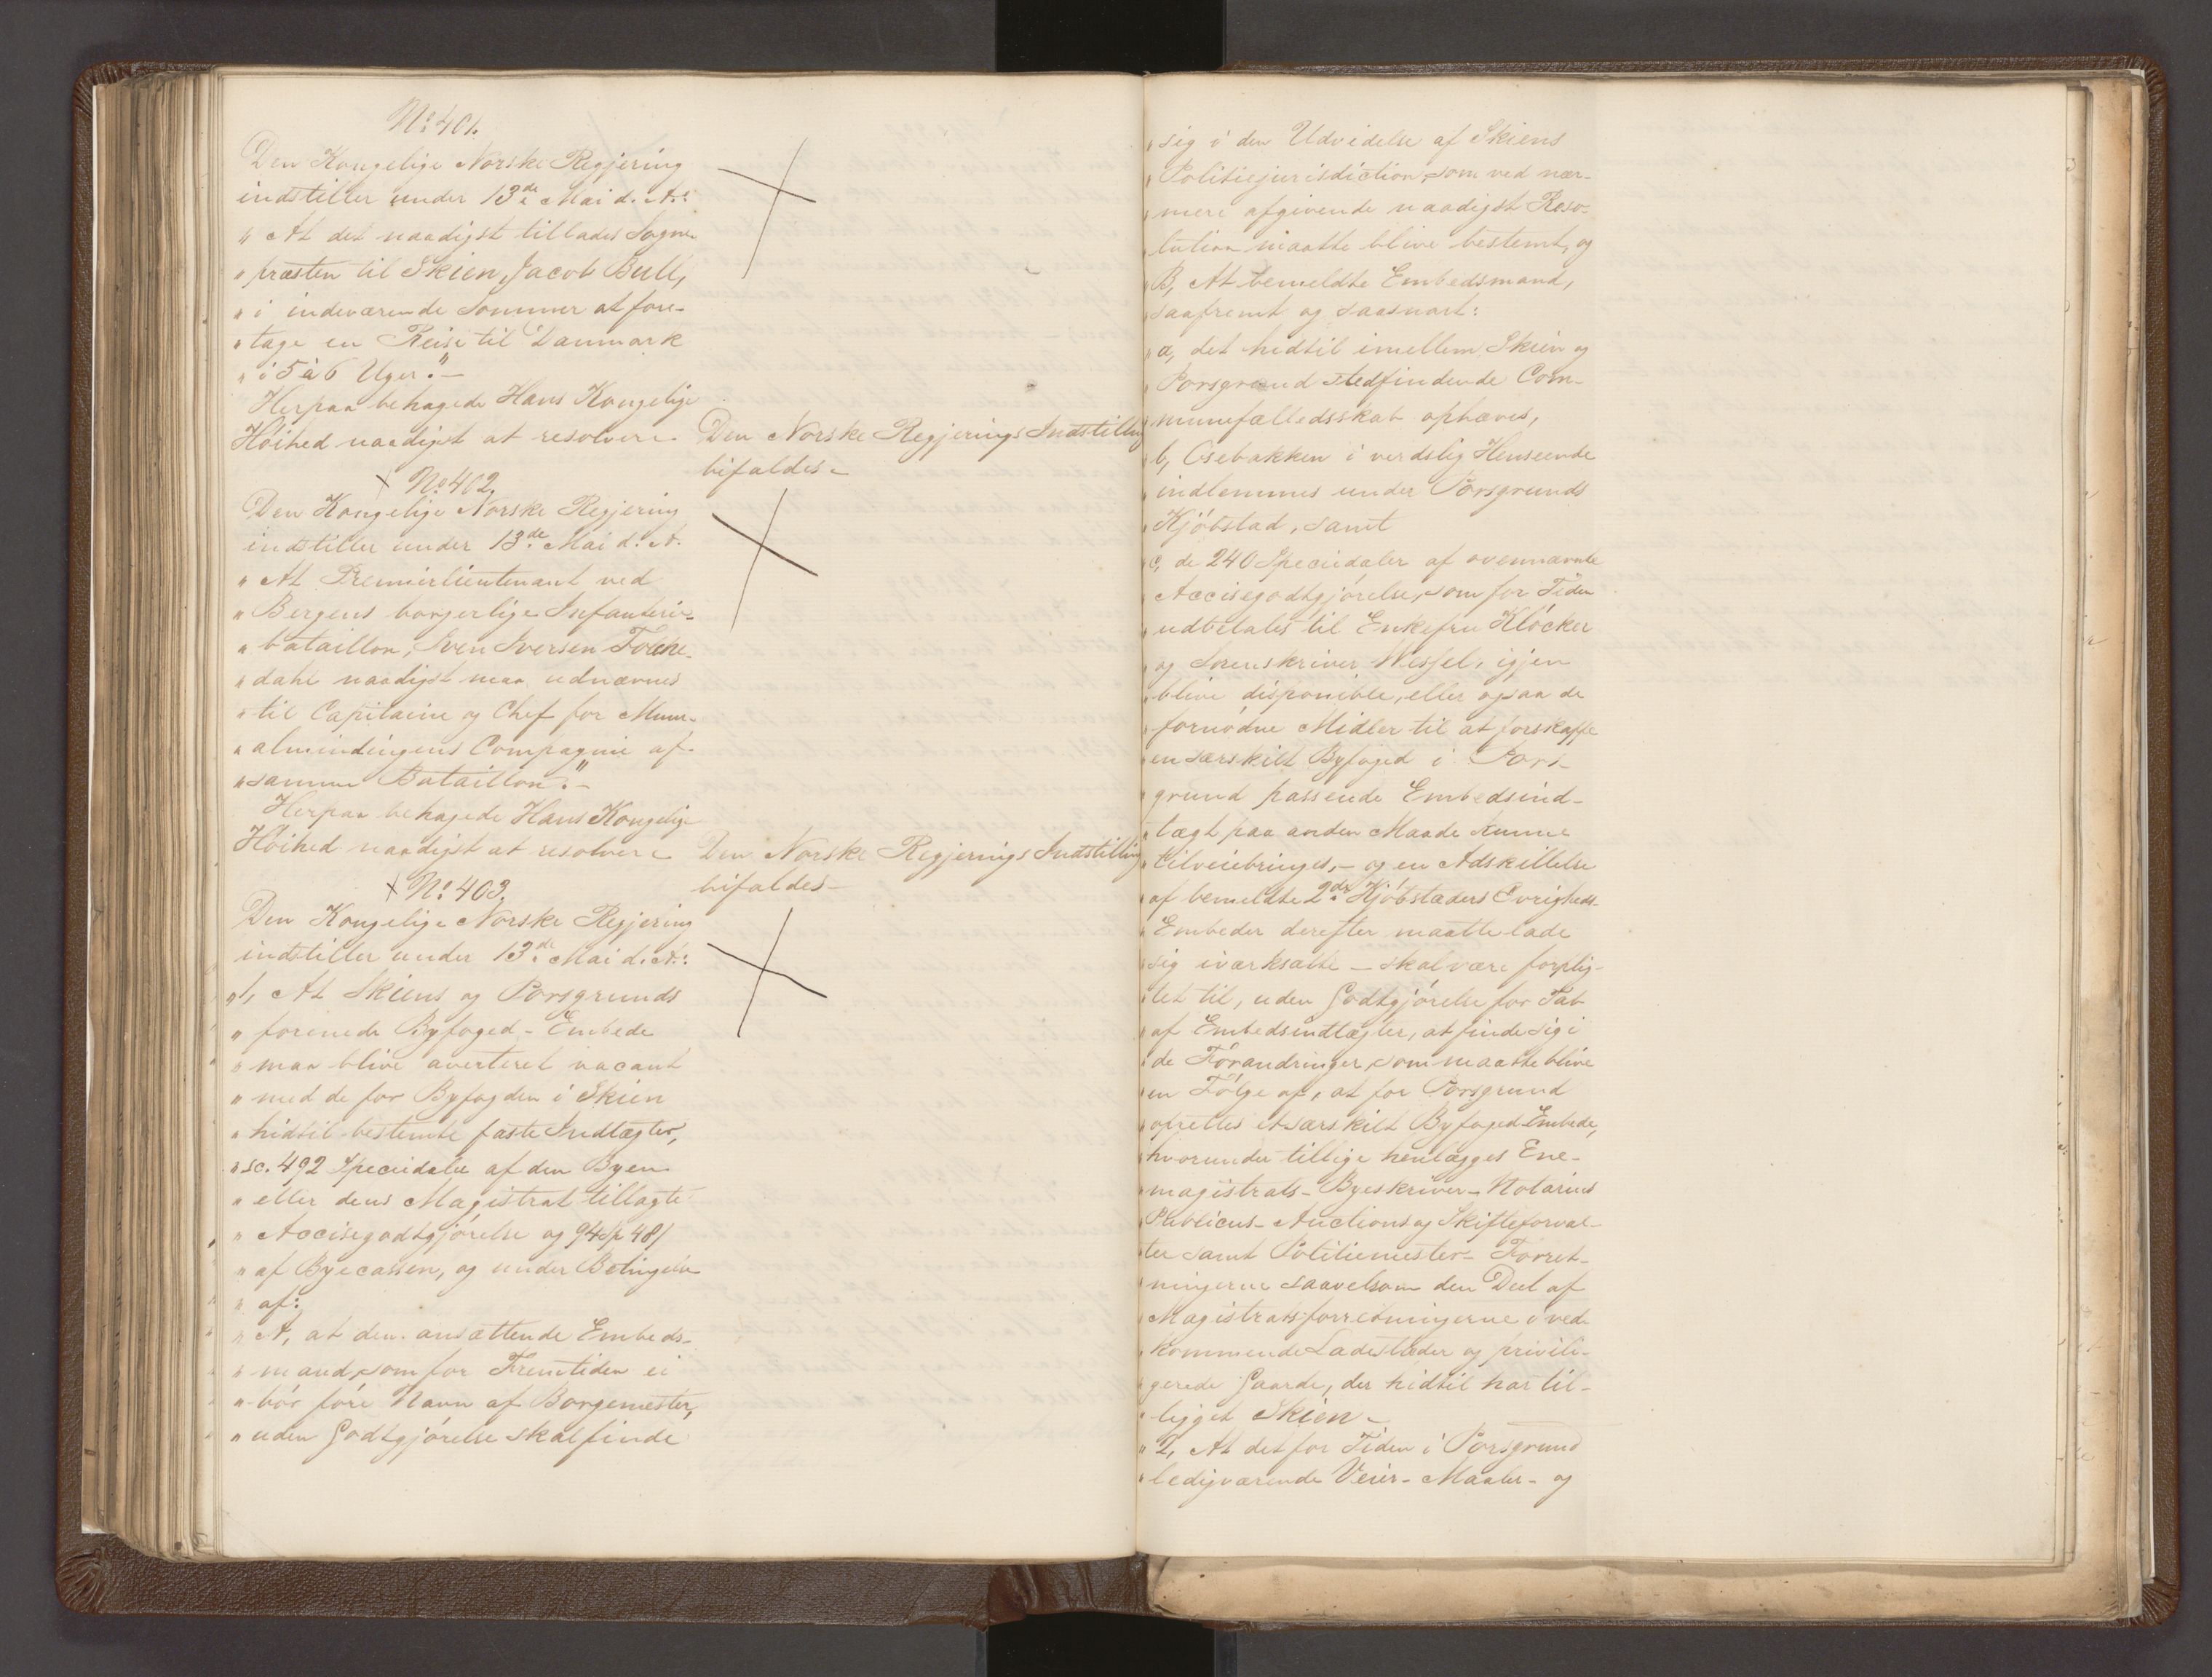 No 401.
Den Kongelige Norske Regjering
indstiller under 13de Mai d. A.:
„ At det naadigst tillades Sogne-
„ præsten til Skien, Jacob Bull,
„ i indeværende Sommer at fore-
„ tage en Reise til Danmark
„ i 5 à 6 Uger." —
Herpaa behagede Hans Kongelige
Høihed naadigst at resolvere
Den Norske Regjerings Indstilling
bifaldes —
No 402.
Den Kongelige Norske Regjering
indstiller under 13de Mai d. A.
„ At Premierlieutenant ved
„ Bergens borgerlige Infanterie-
„ bataillon, Iven Iversen
„ dahl naadigst maa udnævnes
„ til Capitaine og Chef for Muur-
„ almindingens Compagnie af
„ samme Bataillon." —
Herpaa behagede Hans Kongelige
Høihed naadigst at resolvere
Den Norske Regjerings Indstilling
bifaldes —
No 403.
Den Kongelige Norske Regjering
indstiller under 13de Mai d. A.:
„ 1, At Skiens og Porsgrunds
„ forenede Byfoged-Embede
„ maa blive averteret vacant
„ med de for Byfogden i Skien
„ hidtil bestemte faste Indtægter,
„ sc. 492 Speciedaler af den Byen
„ eller dens Magistrat tillagte
„ Accisegodtgjørelse og 94 Sp 48 ſ
„ af Byecassen, og under Betingelse
„ af:
„ A, at den ansættende Embeds-
„ mand, som for Fremtiden ei
„ bør føre Navn af Borgemester,
„ uden Godtgjørelse skal finde
„ sig i den Udvidelse af Skiens
„ Politiejurisdiction, som ved nær-
„ mere afgivende naadigst Reso-
„ lution maatte blive bestemt, og
„ B, At bemeldte Embedsmand,
„ saafremt og saasnart:
„ a, det hidtil imellem Skien og
„ Porsgrund stedfindende Com-
„ munefælledsskab ophæves,
„ b, Osebakken i verdslig Henseende
„ indlemmes under Porsgrunds
„ Kjøbstad, samt
„ c, de 240 Speciedaler af ovennævnte
„ Accisegodtgjørelse, som for Tiden
„ udbetales til Enkefru Kløcker
„ og Sorenskriver Wessel, igjen
„ blive disponible, eller ogsaa de
„ fornødne Midler til at forskaffe
„ en særskilt Byfoged i Pors-
„ grund passende Embedsind-
„ tægt paa anden Maade kunne
„ tilveiebringes, — og en Adskillelse
„ af bemeldte 2de Kjøbstæders Øvrigheds-
„ Embeder derefter maatte lade
„ sig iværksætte — skal være forplig-
„ tet til, uden Godtgjørelse for Tab
„ af Embedsindtægter, at finde sig i
„ de Forandringer, som maatte blive
„ en Følge af, at for Porsgrund
„ oprettes et særskilt Byfoged-Embede,
„ hvorunder tillige henlægges Ene-
„ magistrats- Byeskriver- Notarius
„ Publicus- Auctions og Skifteforval-
„ ter samt Politiemester- Forret-
„ ningerne saavelsom den Deel af
„ Magistratsforretningerne i ved-
„ kommende Ladesteder og privili-
„ gerede Gaarde, der hidtil har til-
„ ligget Skien —
„ 2, At det for Tiden i Porsgrund
„ ledigværende Veier- Maaler- og